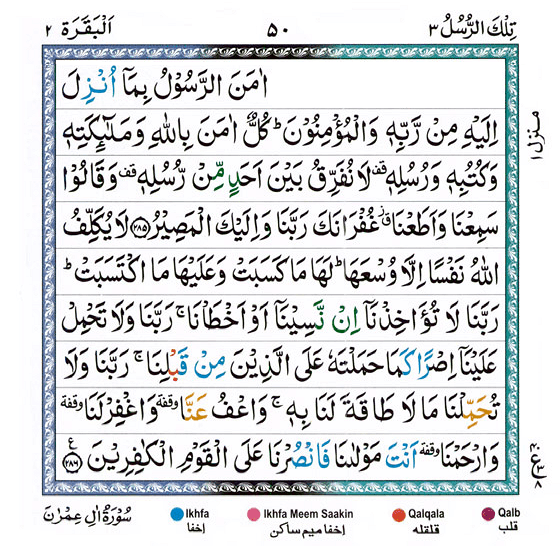 تِلْكَ الرُّسُلُ ٣ ٥٠ اَلْبَقَرَة ٢
اٰمَنَ الرَّسُوْلُ بِمَاۤ اُنْزِلَ
اِلَيْهِ مِنْ رَّبِّهٖ وَالْمُؤْمِنُوْنَ ؕ كُلٌّ اٰمَنَ بِاللّٰهِ وَمَلٰٓئِكَتِهٖ
وَكُتُبِهٖ وَرُسُلِهٖ قف لَا نُفَرِّقُ بَيْنَ اَحَدٍ مِّنْ رُّسُلِهٖ قف وَقَالُوْا
سَمِعْنَا وَاَطَعْنَا غُفْرَانَكَ رَبَّنَا وَاِلَيْكَ الْمَصِيْرُ ﴿۲۸۵﴾ لَا يُكَلِّفُ
اللّٰهُ نَفْسًا اِلَّا وُسْعَهَا ؕ لَهَا مَا كَسَبَتْ وَعَلَيْهَا مَا اكْتَسَبَتْ ؕ
رَبَّنَا لَا تُؤَاخِذْنَاۤ اِنْ نَّسِيْنَاۤ اَوْ اَخْطَاْنَا ۚ رَبَّنَا وَلَا تَحْمِلْ
عَلَيْنَاۤ اِصْرًا كَمَا حَمَلْتَهٗ عَلَى الَّذِيْنَ مِنْ قَبْلِنَا ۚ رَبَّنَا وَلَا
تُحَمِّلْنَا مَا لَا طَاقَةَ لَنَا بِهٖ ۚ وَاعْفُ عَنَّا وقفة وَاغْفِرْ لَنَا وقفة
وَارْحَمْنَا وقفة اَنْتَ مَوْلٰىنَا فَانْصُرْنَا عَلَى الْقَوْمِ الْكٰفِرِيْنَ ﴿۲۸۶﴾ ع
منزل ١
سُوْرَةُ اٰلِ عِمْرٰنَ
Ikhfa
اخفا
Ikhfa Meem Saakin
اخفا میم ساکن
Qalqala
قلقلہ
Qalb
قلب